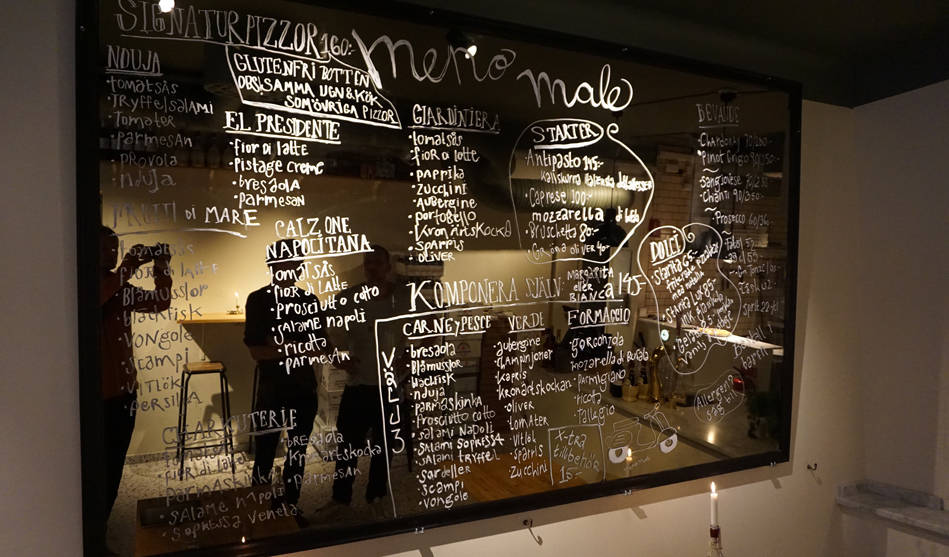 SIGNATURPIZZOR 160:-
GLUTENFRI BOTTEN
OBS! SAMMA UGN & KÖK
SOM ÖVRIGA PIZZOR
Meno male
NDUJA
tomatsås
Tryffelsalami
Tomater
parmesan
provola
nduja
EL PRESIDENTE
fior di latte
pistage creme
bresaola
parmesan
FRUTTI di MARE
tomatsås
fior di latte
Blåmusslor
bläckfisk
vongole
scampi
vitlök
persilja
CALZONE
NAPOLITANA
tomatsås
fior di latte
prosciutto cotto
salame napoli
ricotta
parmesan
CHARCUTERIE
fior di latte
parmaskinka
salame napoli
sopressa veneta
bresaola
kronärtskocka
parmesan
GIARDINIERA
tomatsås
fior di latte
paprika
zucchini
aubergine
portobello
kronärtskocka
sparris
oliver
STARTER
Antipasto 145-
Caprese 100-
mozzarella di
Bruschetta 80-
oliver 40-
KOMPONERA SJÄLV:
MARGARITA
eller
BIANCA
145-
VÄLJ 3
CARNE y PESCE
bresaola
Blåmusslor
bläckfisk
nduja
parmaskinka
prosciutto cotto
salami Napoli
salami sopressa
salami tryffel
sardeller
scampi
vongole
VERDE
aubergine
champinjoner
kapris
kronärtskockan
oliver
tomater
vitlök
sparris
zucchini
FORMAGGIO
gorgonzola
mozzarella di Bufala
parmigiano
ricotta
tallegio
X-tra
tillbehör
15:-
DOLCE
Allergen?
säg till!
Chardonnay
Pinot Grigio
sangiovese
Chianti
Prosecco